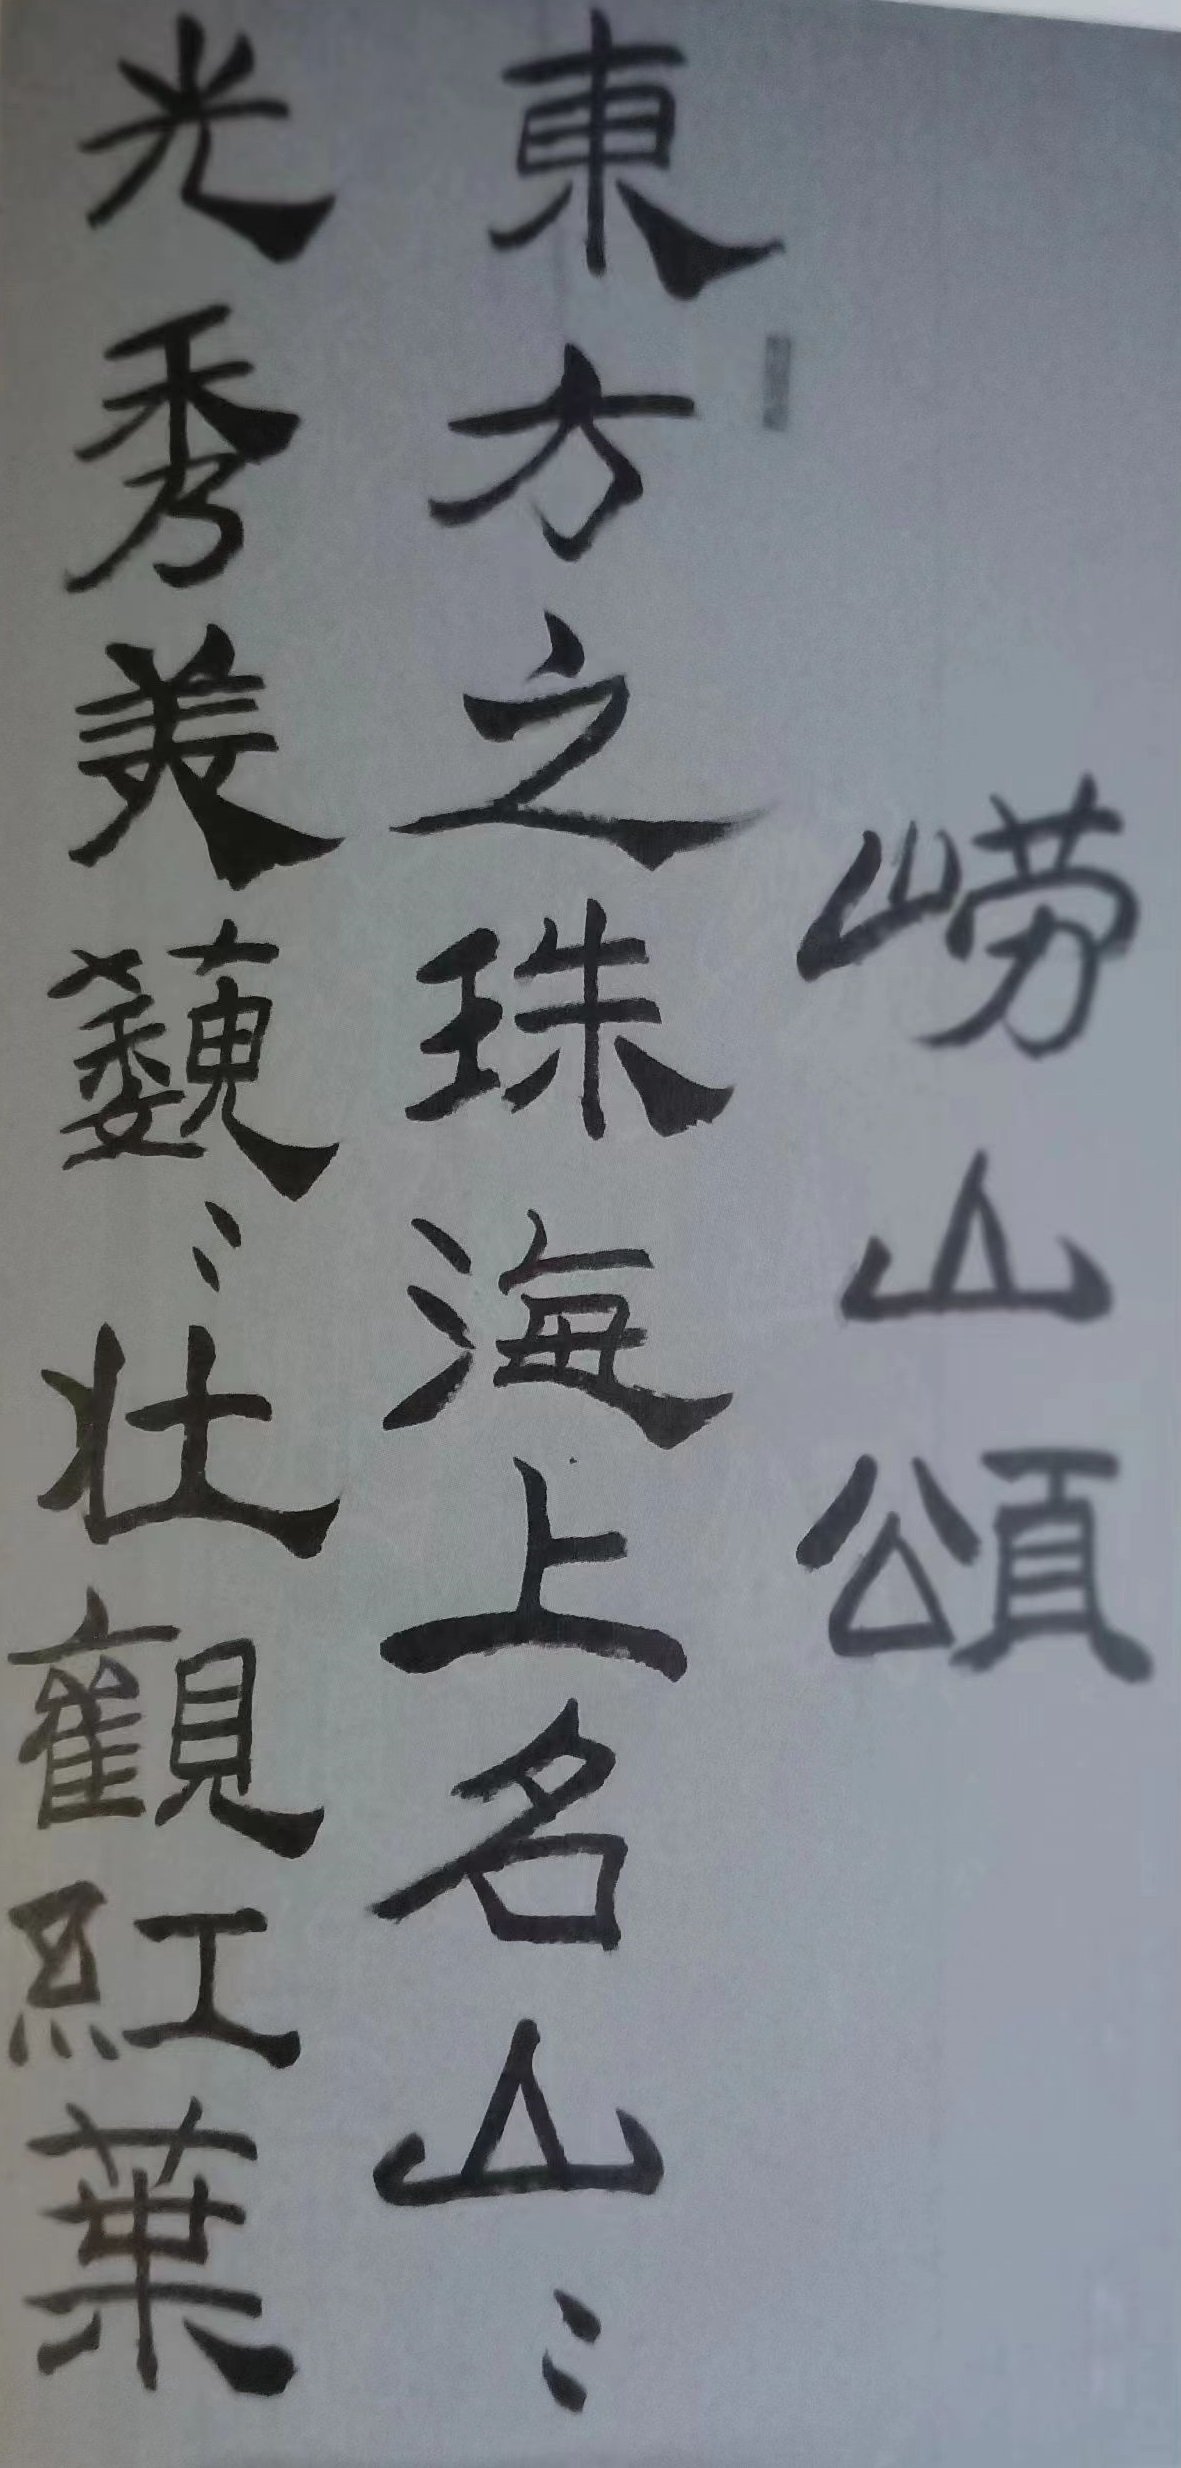 崂山頌
東方之珠海上名山〻
光秀美巍〻壮觀紅葉